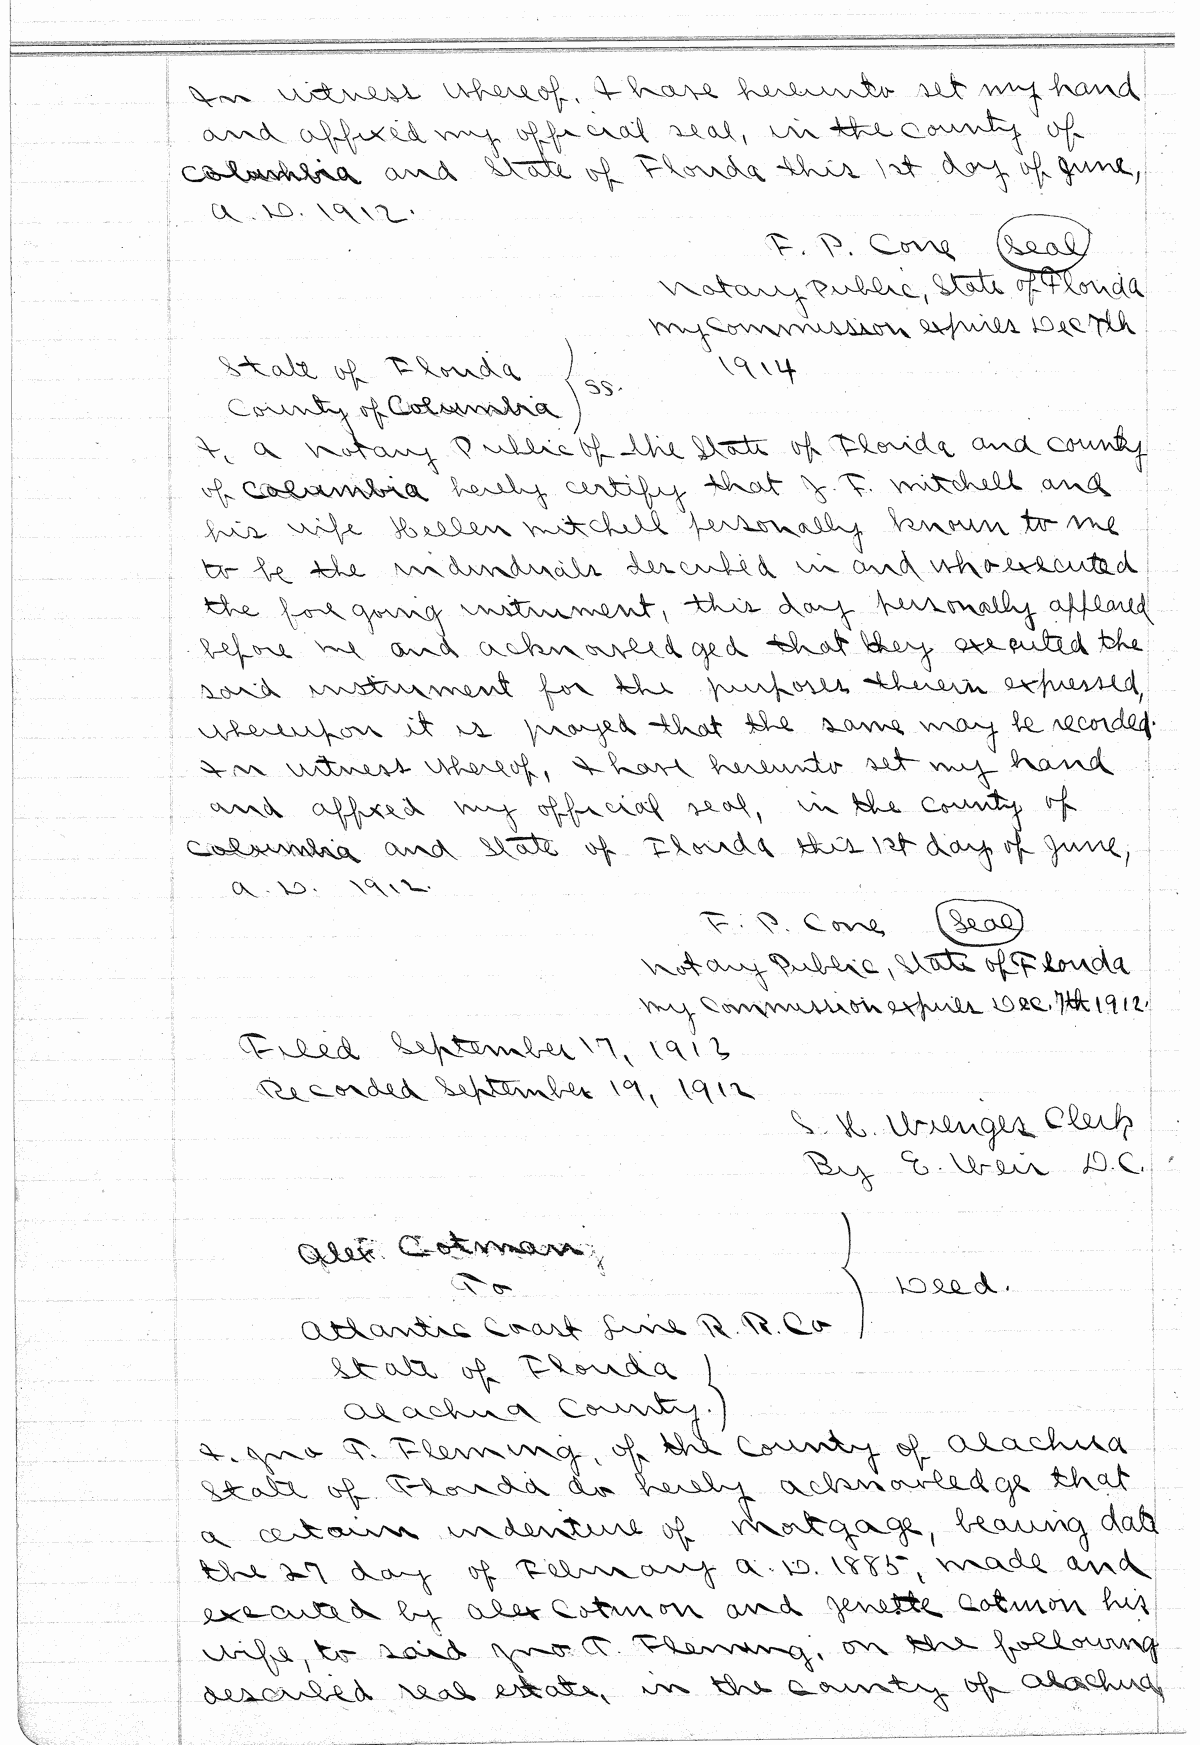 In witness whereof, I have hereunto set my hand
and affixed my official seal, in the county of
Columbia and State of Florida this 1st day of June,
A.D. 1912.
F. P. Cone (Seal)
Notary Public, State of Florida
My Commission expires Dec 7th
1914
State of Florida
County of Columbia } ss.
I, a Notary Public of the State of Florida and county
of Columbia hereby certify that J. F. Mitchell and
his wife Hellen Mitchell personally known to me
to be the individuals described in and who executed
the foregoing instrument, this day personally appeared
before me and acknowledged that they executed the
said instrument for the purposes therein expressed,
whereupon it is prayed that the same may be recorded.
In witness whereof, I have hereunto set my hand
and affixed my official seal, in the county of
Columbia and State of Florida this 1st day of June,
A.D. 1912.
F. P. Cone (Seal)
Notary Public, State of Florida
My Commission expires Dec. 7th 1912.
Filed September 17, 1913
Recorded September 19, 1912
S. H. Wienges Clerk
By E. Weir D.C.
Alex. Cotman,
To
Atlantic Coast Line R. R. Co } Deed.
State of Florida
Alachua County. }
I. Jno T. Fleming, of the County of Alachua
State of Florida do hereby acknowledge that
a certain indenture of mortgage, bearing date
the 27 day of February A.D. 1885, made and
executed by Alex Cotmon and Jenette Cotmon his
wife, to said Jno. T. Fleming, on the following
described real estate, in the county of Alachua,